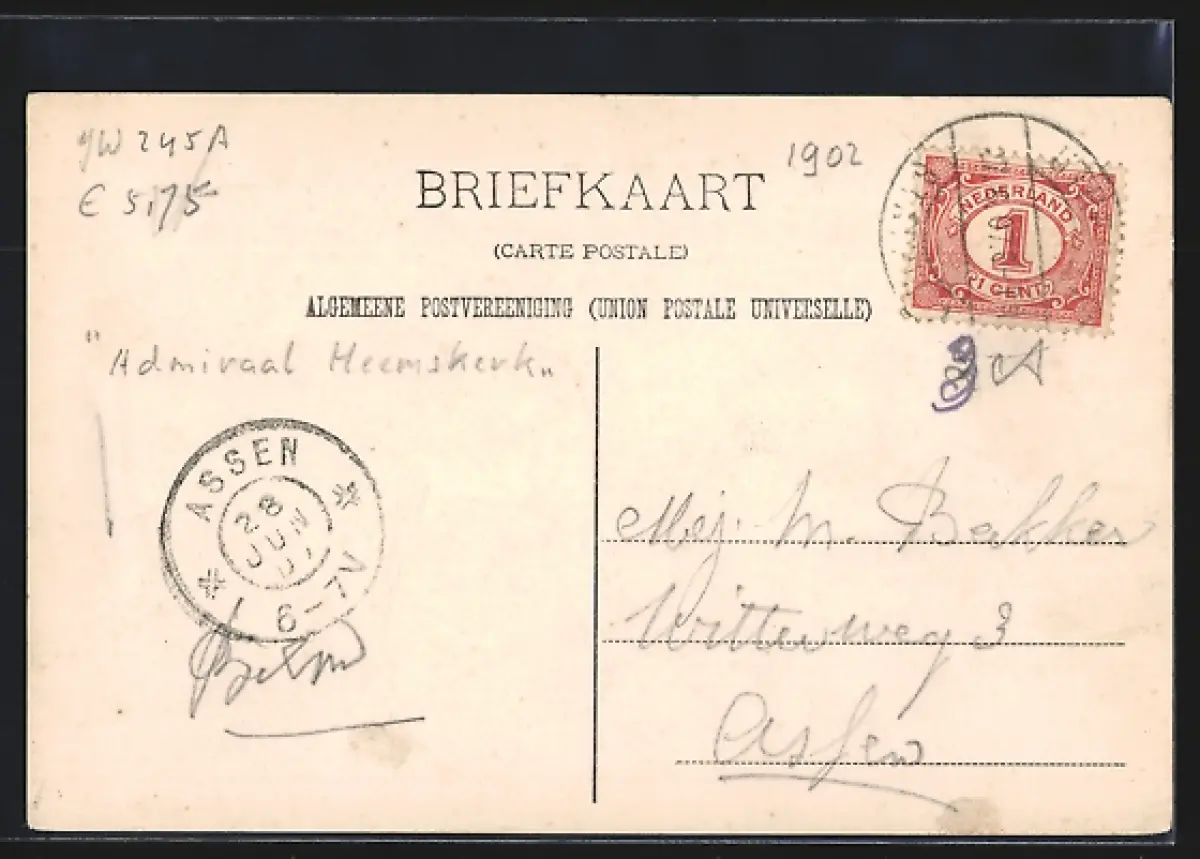 gW 245A
€ 5,75
1902
BRIEFKAART
(CARTE POSTALE)
ALGEMEENE POSTVEREENIGING (UNION POSTALE UNIVERSELLE)
NEDERLAND
1
(1 CENT)
"Admiraal Heemskerk"
ASSEN
28
JUN
6-7V
Mej. M. Bakker
Witterweg 3
Assen